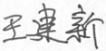 王建新